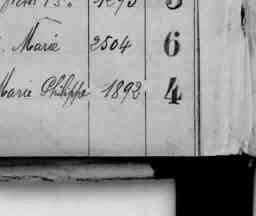 Marie 2504 6
Marie Philippe 1892 4